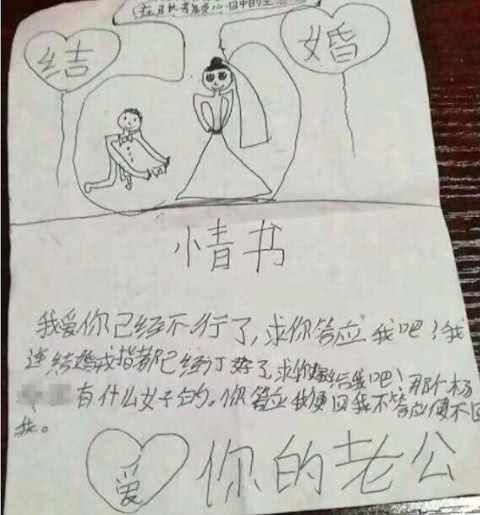 结 婚
情书
我爱你已经不行了,求你答应我吧!我
连结婚戒指都已经订好了求你嫁给我吧!那个杨
有什么好的。你答应我便回我不答应便不回
我。
爱 你的老公